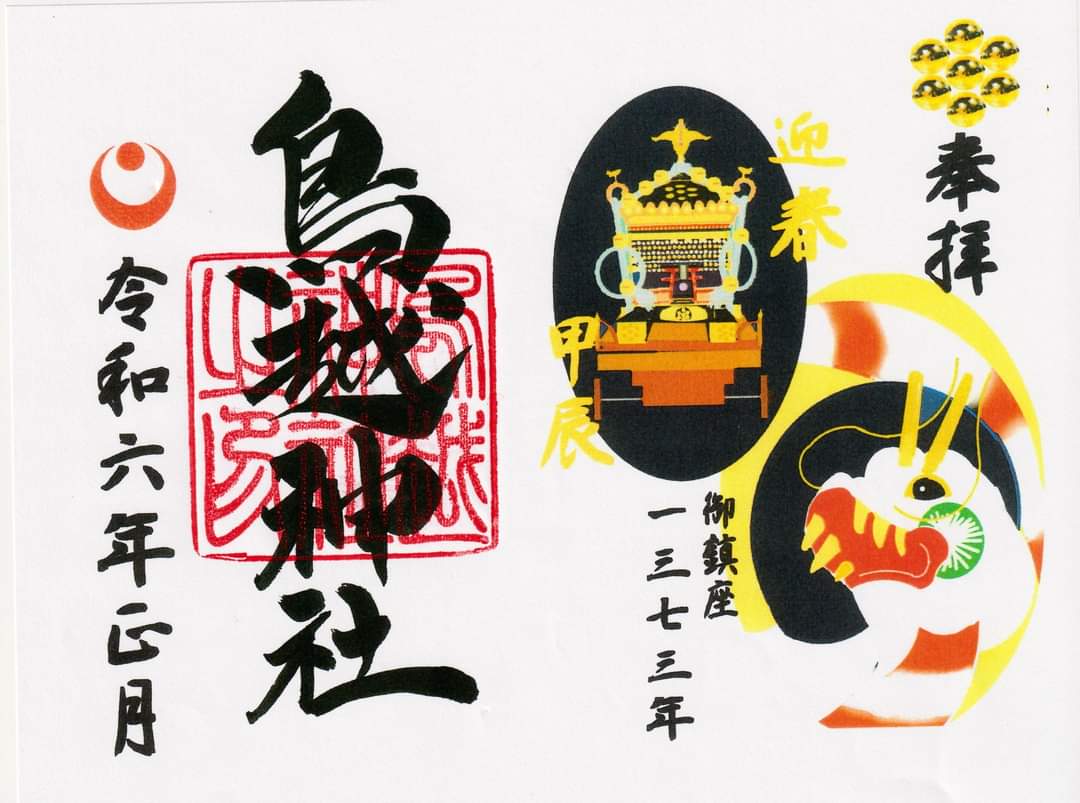 奉拝
迎春
甲辰
御鎮座
一三七三年
鳥越神社
令和六年正月